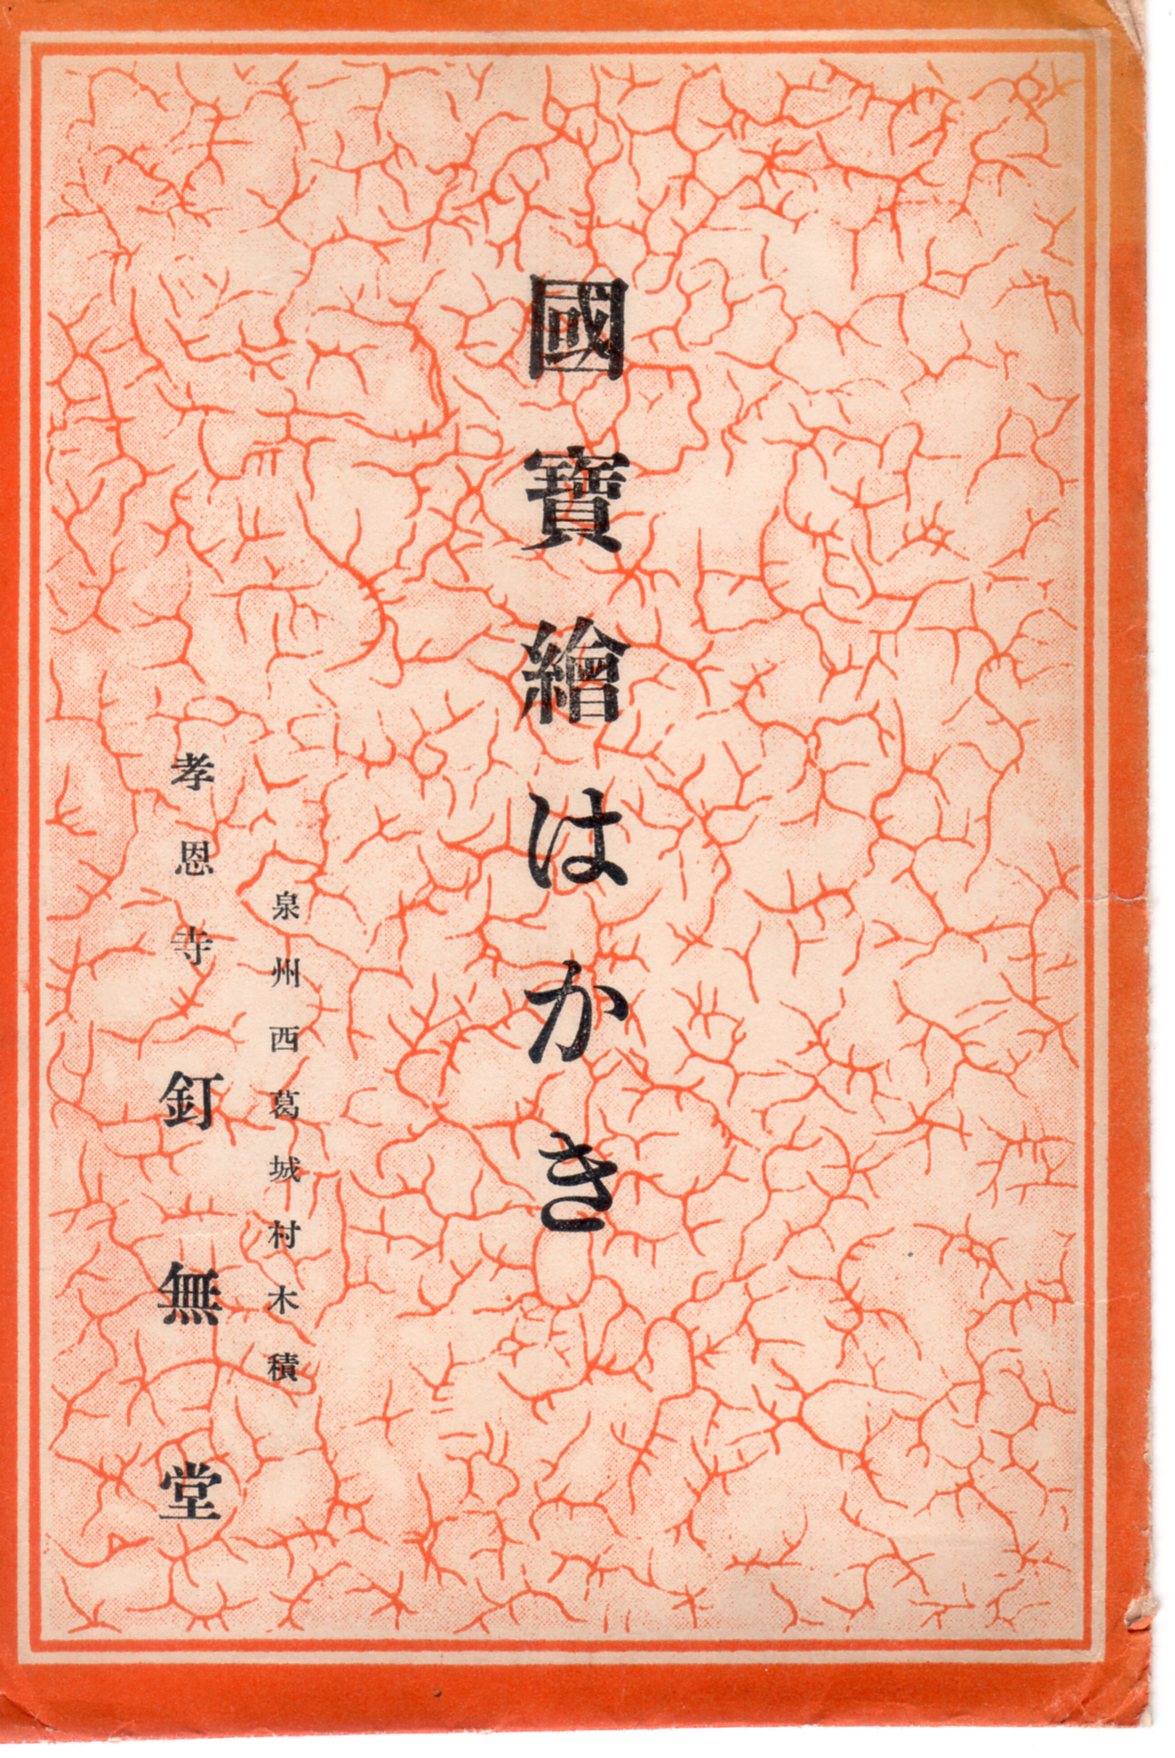 國寶繪はかき
泉州西葛城村木積
孝恩寺 釘無堂